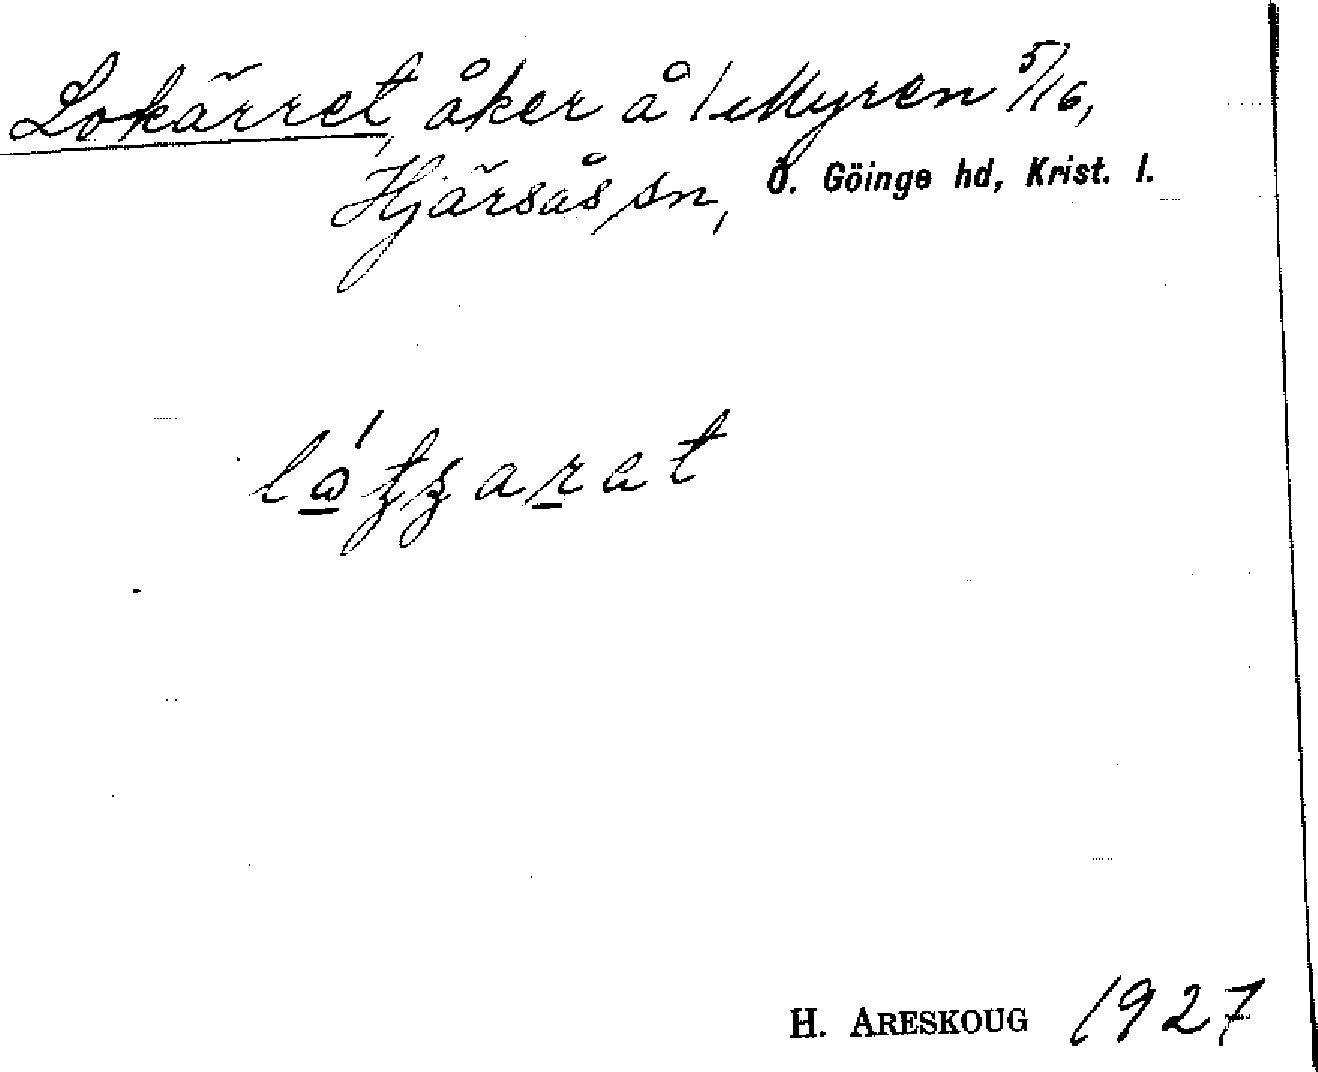 Lokärret, åker å 1 Myren 5/16,
Hjärsås sn, Ö. Göinge hd, Krist. l.
H. ARESKOUG 1927